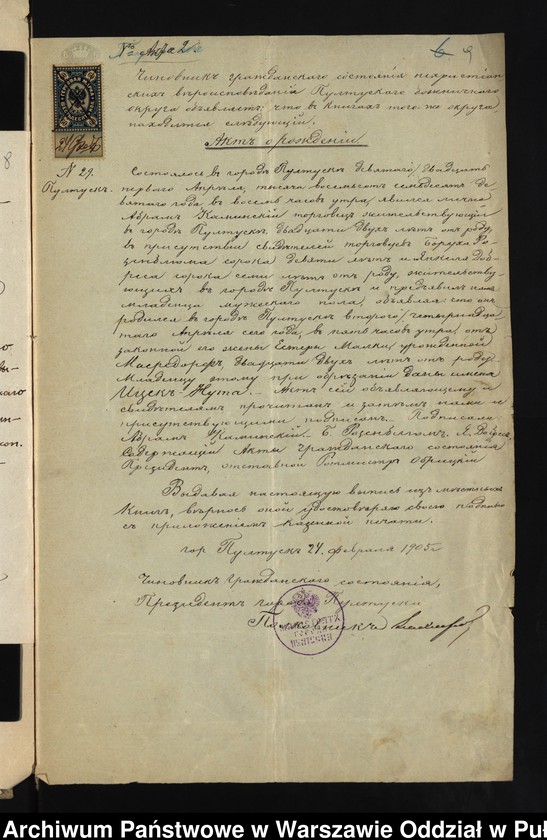 6 9
Чиновникъ гражданскаго состоянія нехристіан-
скихъ вѣроисповѣданій Пултускаго божничнаго
округа объявляетъ: что въ книгахъ того же округа,
находится слѣдующій.
Актъ о рожденіи.
N 29.
Пултускъ.
Состоялось въ городѣ Пултускѣ девятаго/двадцать
перваго Апрѣля, тысяча восемьсотъ семьдесятъ де-
вятаго года въ восемь часовъ утра, явился лично
Абрамъ Каминскій торговецъ жительствующій
въ городѣ Пултускѣ, двадцати двухъ лѣтъ отъ роду,
въ присутствіи свидѣтелей торговцевъ Боруха Ро-
зенблюма сорока девяти лѣтъ и Янкеля
сорока семи лѣтъ отъ роду, жительству-
ющихъ въ городѣ Пултускѣ и предъявилъ намъ
младенца мужескаго пола, объявляя: что онъ
родился въ городѣ Пултускѣ втораго/четырнадца-
таго Апрѣля сего года, въ пять часовъ утра, отъ
законной его жены Естеры Малки, урожденной
двадцати двухъ лѣтъ отъ роду.
Младенцу этому при обрѣзаніи даны имена
Ицекъ-Нута. Актъ сей объявляющему и
свидѣтелямъ прочитанъ и затѣмъ нами и
присутствующими подписанъ. Подписали
Абрамъ Каминскій. Б. Розенблюмъ, Я.
Содержащій Акты гражданскаго состоянія
Президентъ, отставной Ротмистръ
Выдавая настоящую выпись изъ мѣстныхъ
книгъ, вѣрность оной удостовѣряю своею подписью
съ приложеніемъ казенной печати.
гор. Пултускъ 24 февраля 1905 г.
Чиновникъ гражданскаго состоянія,
Президентъ города Пултуска
Полковникъ
Archiwum Państwowe w Warszawie Oddział w Puł